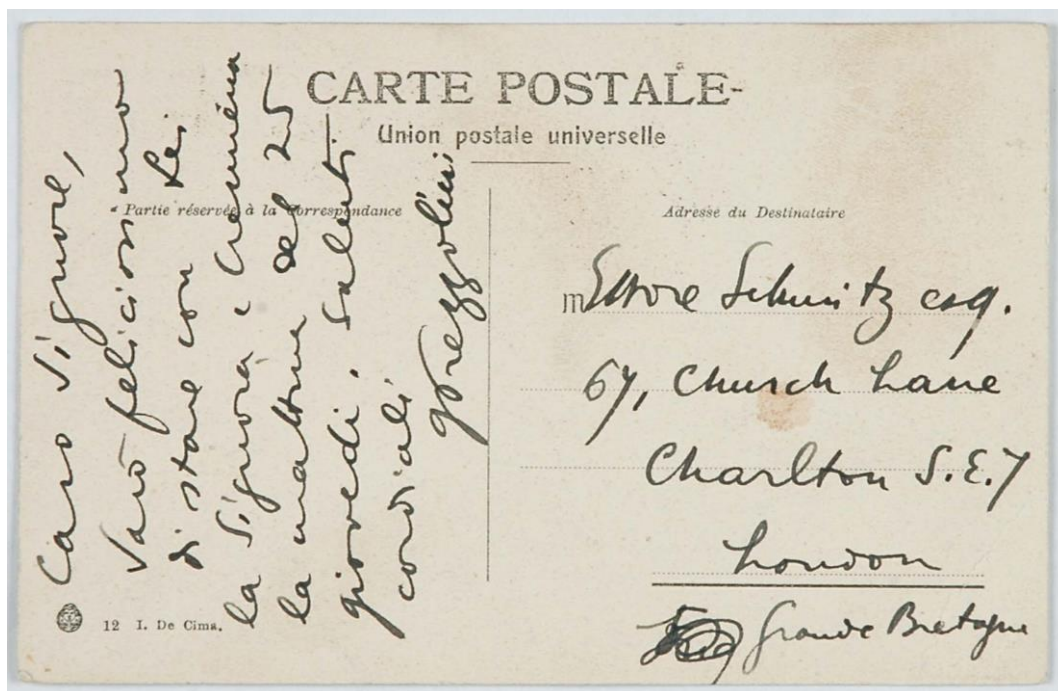 CARTE POSTALE
Union postale universelle
Partie réservée à la Correspondance
Adresse du Destinataire
Caro Signore,
Sarò felicissimo
di stare con Lei
la Signora e Cremieux
la mattina del 25
giovedì. Saluti
cordiali
GPrezzolini
M Ettore Schmitz esq.
67, Church Lane
Charlton S.E.7
London
Grande Bretagne
12 I. De Cima.